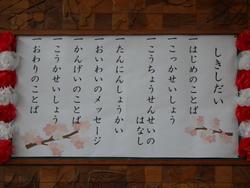 しきしだい
一はじめのことば
一こっかせいしょう
一こうちょうせんせいの
はなし
一たんにんしょうかい
一おいわいのメッセージ
一かんげいのことば
一こうかせいしょう
一おわりのことば